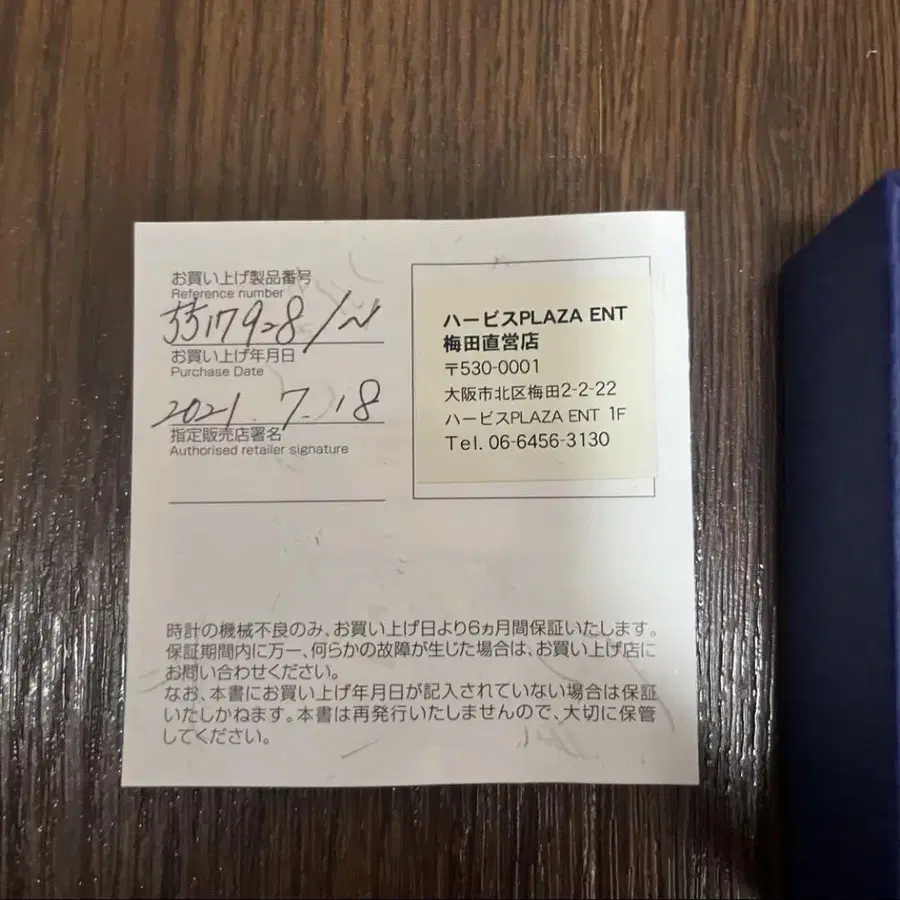 お買い上げ製品番号
Reference number
5517928/N
お買い上げ年月日
Purchase Date
2021.7.18
指定販売店署名
Authorised retailer signature
ハービスPLAZA ENT
梅田直営店
〒530-0001
大阪市北区梅田2-2-22
ハービスPLAZA ENT 1F
Tel. 06-6456-3130
時計の機械不良のみ、お買い上げ日より6ヵ月間保証いたします。
保証期間内に万一、何らかの故障が生じた場合は、お買い上げ店に
お問い合わせください。
なお、本書にお買い上げ年月日が記入されていない場合は保証
いたしかねます。本書は再発行いたしませんので、大切に保管
してください。